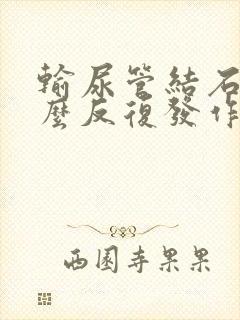 輸尿管結石
麼反復發作
西園寺果果